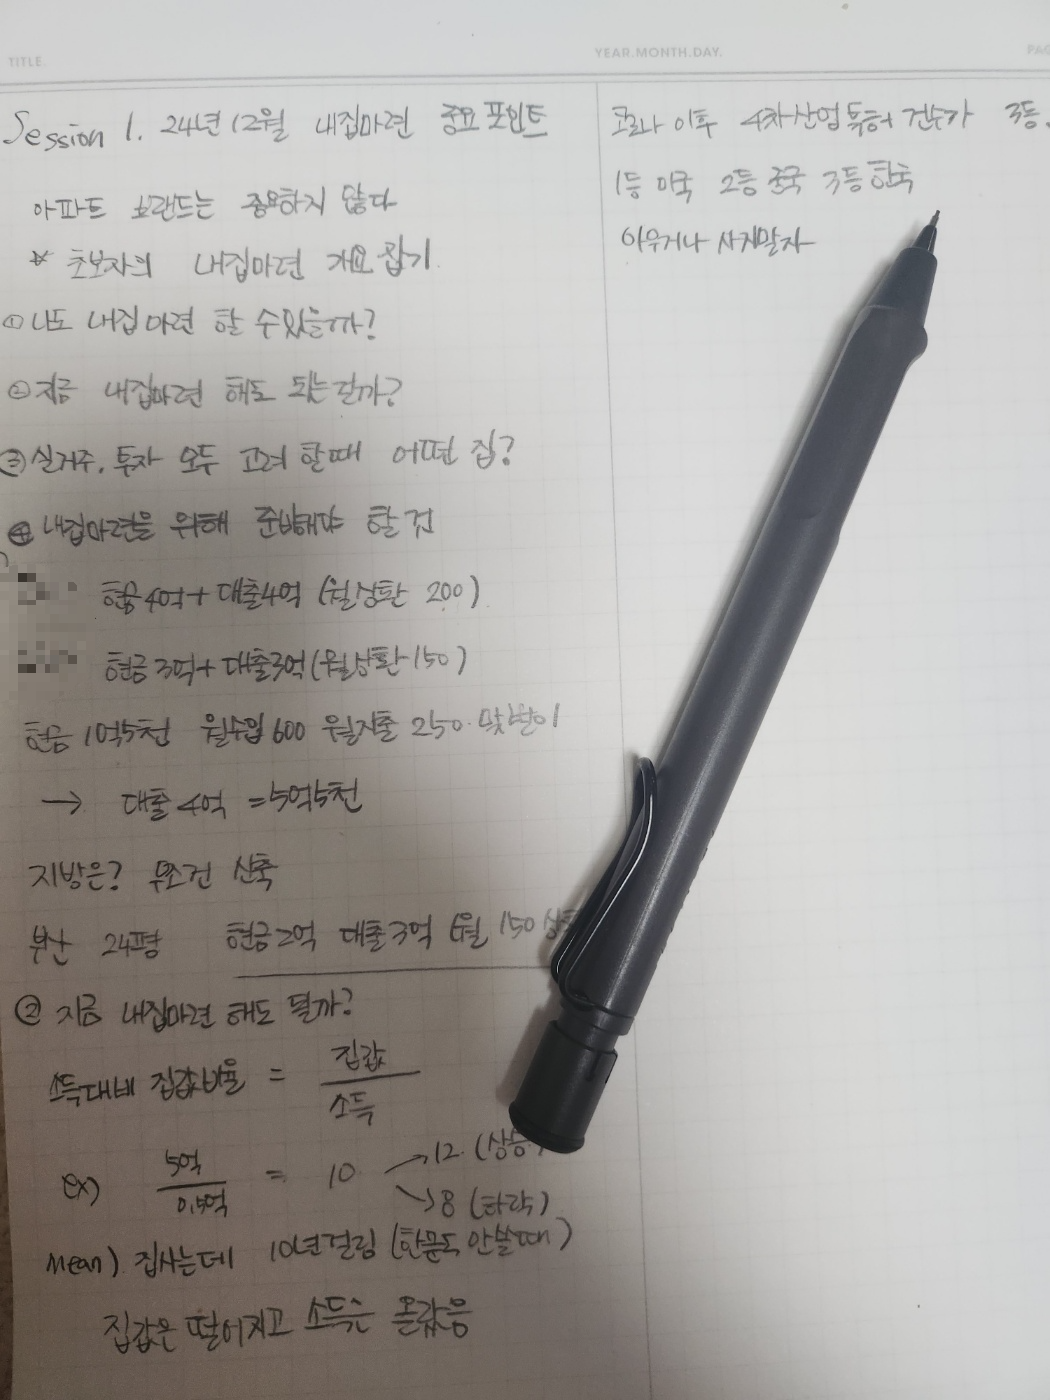 TITLE.
YEAR.MONTH.DAY.
Session 1. 24년 12월 내집마련 중요 포인트
아파트 브랜드는 중요하지 않다
* 초보자의 내집마련 개요 잡기
① 나도 내집마련 할 수 있을까?
② 지금 내집마련 해도 되는걸까?
③ 실거주, 투자 모두 고려 할때 어떤 집?
④ 내집마련을 위해 준비해야 할 것
현금 4억 + 대출4억 (월상환 200)
현금 3억 + 대출3억 (월상환 150)
현금 1억5천 월수입 600 월지출 250. 맞벌이
→ 대출 4억 = 5억5천
지방은? 무조건 신축
부산 24평 현금2억 대출3억 (월 150
② 지금 내집마련 해도 될까?
소득대비 집값비율 = 집값
소득
ex) 5억 = 10 → 12. (상승)
0.5억 → 8 (하락)
mean) 집사는데 10년걸림 (한푼도 안쓸때)
집값은 떨어지고 소득은
코로나 이후 4차산업 특허 건수가 3등.
1등 미국 2등 중국 3등 한국
사지말자